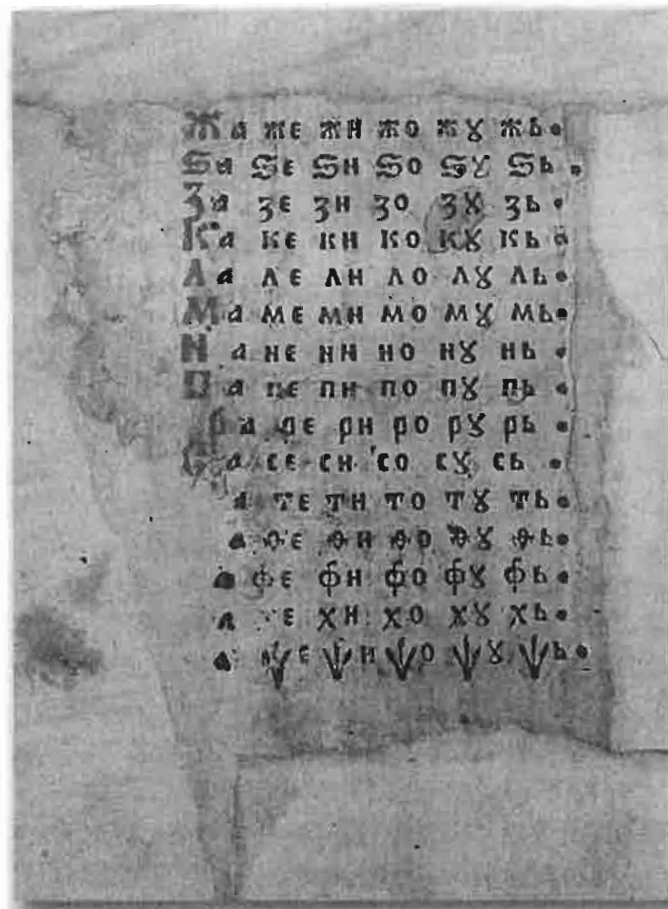 Жа же жн жо жꙋ жь •
Ѕа ѕе ѕн ѕо ѕꙋ ѕь •
За зе зн зо зꙋ зь •
Ка ке кн ко кꙋ кь •
Ла ле лн ло лꙋ ль •
Ма ме мн мо мꙋ мь •
На не нн но нꙋ нь •
Па пе пн по пꙋ пь •
ра ре рн ро рꙋ рь •
Са се сн со сꙋ сь •
а те тн то тꙋ ть •
а ѳе ѳн ѳо ѳꙋ ѳь •
а фе фн фо фꙋ фь •
а хе хн хо хꙋ хь •
а ѱе ѱн ѱо ѱꙋ ѱь •